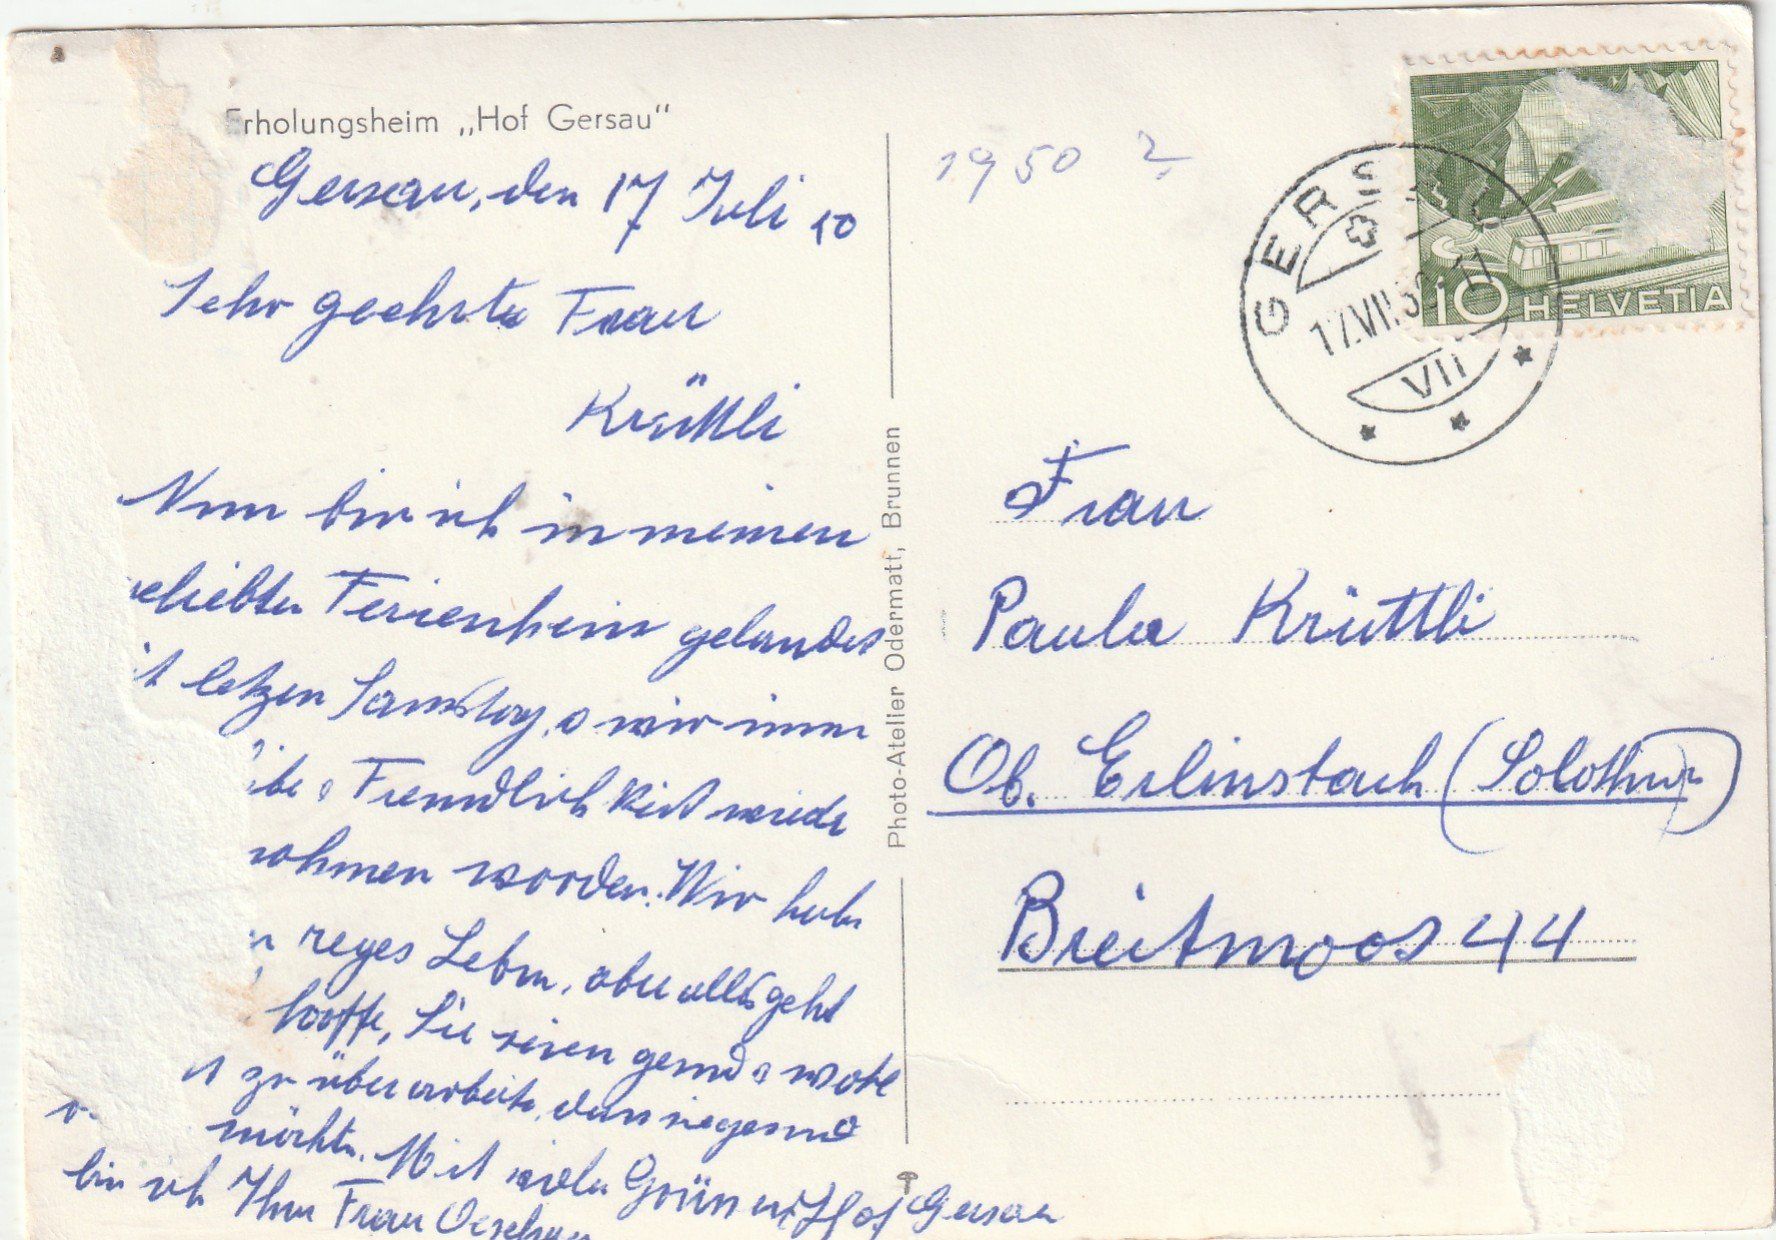 Erholungsheim „Hof Gersau"
Gersau, den 17 Juli 50
Sehr geehrte Frau
Krüttli
Nun bin ich in meinen
geliebten Ferienheim gelandet
letzen Samstag, wir
Freundlich
nohmen worden. Wir habn
reges Leben, aber alles geht
hoffe, Sie seien gesund & wohl
zu über arbeite, dass sie gesund
möchten. Mit vielen
bin ich Ihre Frau
Hof Gersau
Photo-Atelier Odermatt, Brunnen
1950 ?
GERSAU
17.VII.50.
VII
10 HELVETIA
Frau
Paula Krüttli
Ob. Erlinsbach (Solothurn)
Breitmoos 44